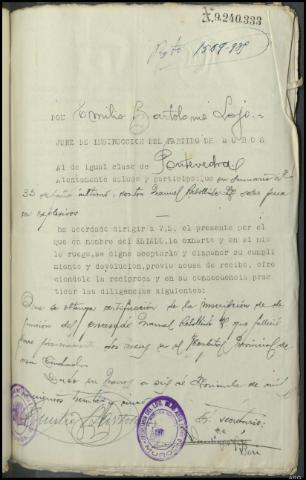 N.9.240.333
DON Emilio Bartolomé Lojo.-
JUEZ DE INSTRUCCION DEL PARTIDO DE MUROS
Al de igual clase de Pontevedra
Atentamente saluda y participa: que en Sumario nº
35 de año último, contra Manuel Rebollido sobre pesca
con explosivos
he acordado dirigir a V.S. el presente por el
que en nombre del ESTADO, le exhorto y en el mio
le ruego, se digne aceptarlo y disponer su cumpli
miento y devolucion, previo acuse de recibo, ofre
ciéndole la recíproca y en su consecuencia prac
ticar las diligencias siguientes:
Que se obtenga certificación de la inscripción de de
función del procesado Manuel Rebollido que falleció
hace proximamente dos meses en el Hospital Provincial de
esa Ciudad.
Dado en Muros a seis de Noviembre de mil
novecientos treinta y
El secretario: